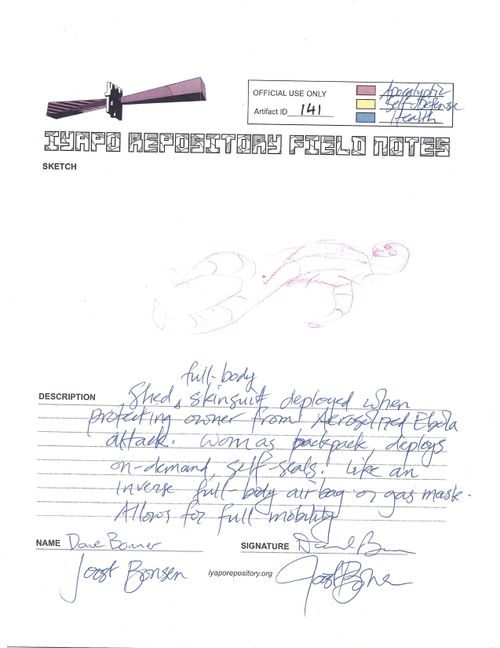 OFFICIAL USE ONLY
Artifact ID 141
Apocalyptic
Self-Defense
Health
IYAPO REPOSITORY FIELD NOTES
SKETCH
full-body
DESCRIPTION Shed, skinsuit deployed when
protecting owner from Aerosolized Ebola
attack. Worn as backpack, deploys
on-demand, self-seals. Like an
inverse full-body airbag or gas mask.
Allows for full mobility
NAME Dave Bonner SIGNATURE
Joost Bonsen
iyaporepository.org